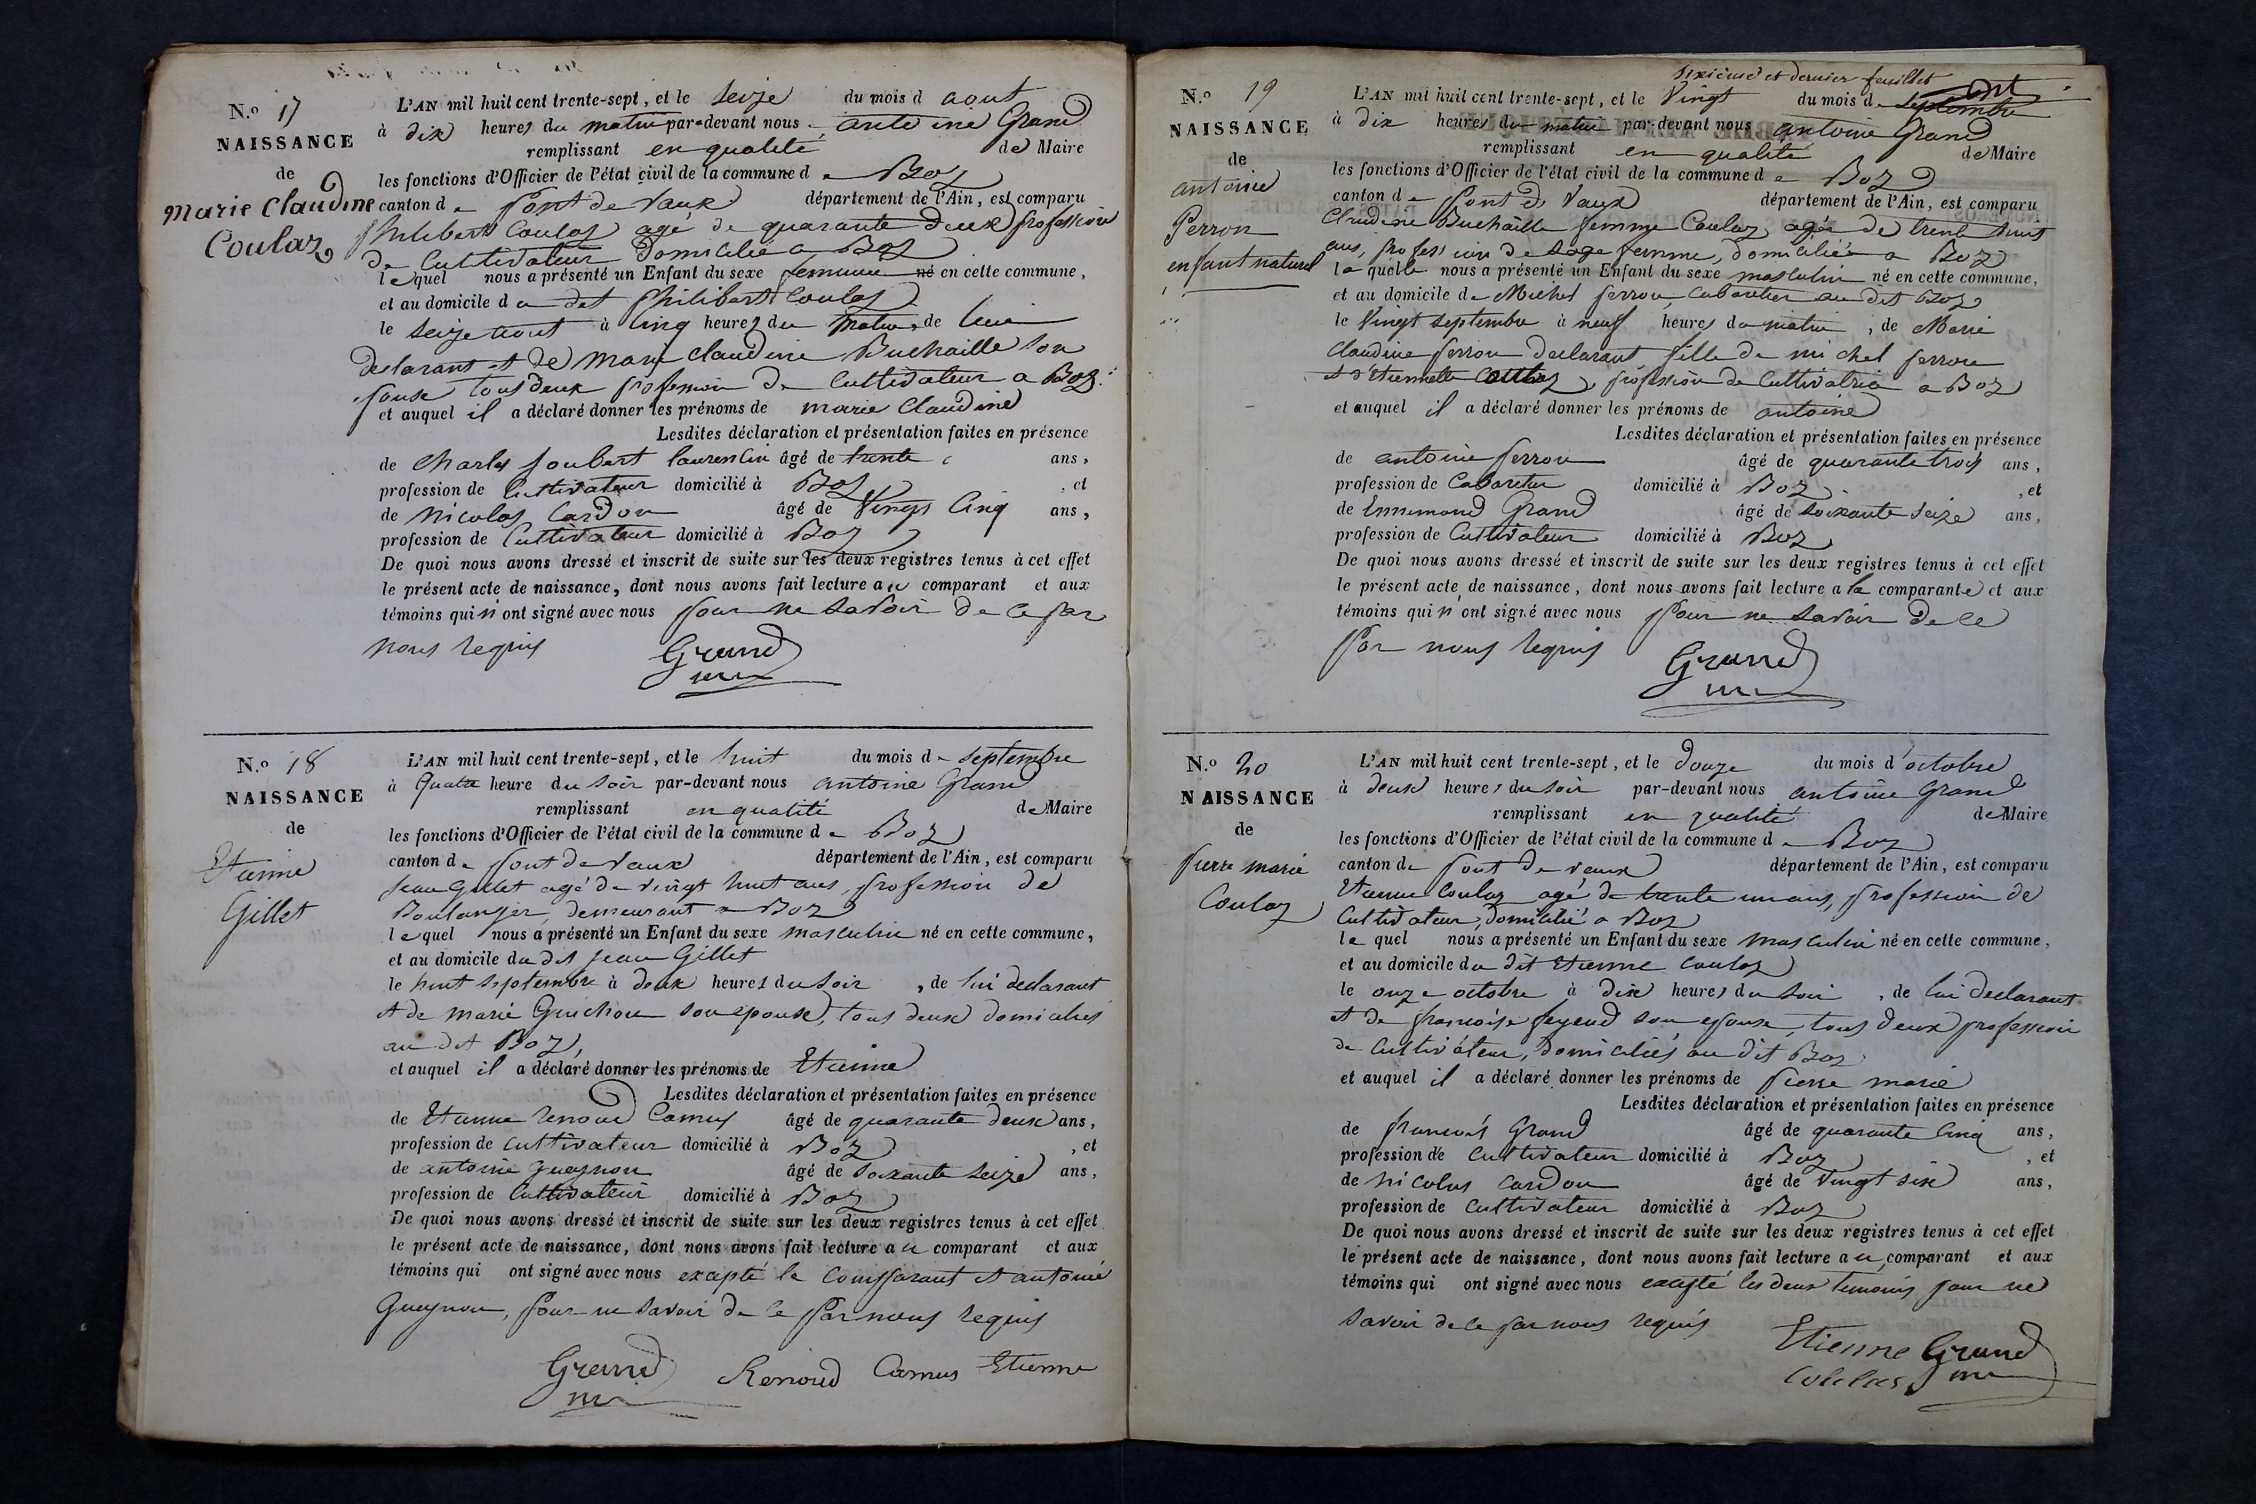 N.o 17
NAISSANCE
de
marie Claudine
Coulaz
L'AN mil huit cent trente-sept, et le seize du mois d aout
à dix heures du matin par-devant nous antoine Grand
remplissant en qualité de Maire
les fonctions d'Officier de l'état civil de la commune de Boz
canton de pont de vaux département de l'Ain, est comparu
philibert Coulaz agé de quarante deux profession
de Cultivateur domicilié a Boz
lequel nous a présenté un Enfant du sexe feminin né en cette commune,
et au domicile du dit philibert Coulaz
le seize aout à cinq heures du matin, de lui
declarant et de marie claudine Buchaille son
epouse tous deux profession de Cultivateur a Boz.
et auquel il a déclaré donner les prénoms de marie Claudine
Lesdites déclaration et présentation faites en présence
de Charles Joubert laurencin âgé de trente ans,
profession de Cultivateur domicilié à Boz, et
de Nicolas Cardon âgé de Vingt Cinq ans,
profession de Cultivateur domicilié à Boz
De quoi nous avons dressé et inscrit de suite sur les deux registres tenus à cet effet
le présent acte de naissance, dont nous avons fait lecture au comparant et aux
témoins qui n'ont signé avec nous pour ne savoir de ce par
nous requis
Grand
N.o 18
NAISSANCE
de
Etienne
Gillet
L'AN mil huit cent trente-sept, et le huit du mois de septembre
à quatre heure du soir par-devant nous antoine Grand
remplissant en qualité de Maire
les fonctions d'Officier de l'état civil de la commune de Boz
canton de pont de vaux département de l'Ain, est comparu
Jean Gillet agé de vingt huit ans, profession de
Boulanger, demeurant a Boz
lequel nous a présenté un Enfant du sexe masculin né en cette commune,
et au domicile du dit jean Gillet
le huit septembre à deux heures du soir, de lui declarant
et de marie Guichon son epouse, tous deux domiciliés
au dit Boz,
et auquel il a déclaré donner les prénoms de Etienne
Lesdites déclaration et présentation faites en présence
de Etienne Renoud Camus âgé de quarante deux ans,
profession de cultivateur domicilié à Boz, et
de antoine gueynon âgé de soixante seize ans,
profession de Cultivateur domicilié à Boz
De quoi nous avons dressé et inscrit de suite sur les deux registres tenus à cet effet
le présent acte de naissance, dont nous avons fait lecture au comparant et aux
témoins qui ont signé avec nous excepté le Comparant et antoine
Gueynon, pour ne savoir de ce par nous requis
Grand Renoud Camus Etienne
sixieme et dernier feuillet
N.o 19
NAISSANCE
de
antoine
Perron
enfant naturel
L'AN mil huit cent trente-sept, et le Vingt du mois de septembre
à dix heures du matin par-devant nous antoine Grand
remplissant en qualité de Maire
les fonctions d'Officier de l'état civil de la commune de Boz
canton de pont de vaux département de l'Ain, est comparu
Claudine Buchaille femme Coulaz, agée de trente huit
ans, profession de sage femme, domiciliée a Boz
laquelle nous a présenté un Enfant du sexe masculin né en cette commune,
et au domicile de Michel perron, cabaretier au dit Boz
le Vingt septembre à neuf heures du matin, de Marie
Claudine perron declarant fille de michel perron
et d'Etiennette Coulaz, profession de Cultivatrice a Boz
et auquel il a déclaré donner les prénoms de antoine
Lesdites déclaration et présentation faites en présence
de antoine perron âgé de quarante trois ans,
profession de Cabaretier domicilié à Boz, et
de Ennemond Grand âgé de soixante seize ans,
profession de Cultivateur domicilié à Boz
De quoi nous avons dressé et inscrit de suite sur les deux registres tenus à cet effet
le présent acte de naissance, dont nous avons fait lecture a la comparante et aux
témoins qui n'ont signé avec nous pour ne savoir de ce
par nous requis
Grand
N.o 20
NAISSANCE
de
pierre marie
Coulaz
L'AN mil huit cent trente-sept, et le douze du mois d'octobre
à deux heures du soir par-devant nous antoine Grand
remplissant en qualité de Maire
les fonctions d'Officier de l'état civil de la commune de Boz
canton de pont de vaux département de l'Ain, est comparu
Etienne Coulaz agé de trente un ans, profession de
Cultivateur, domicilié a Boz
lequel nous a présenté un Enfant du sexe masculin né en cette commune,
et au domicile du dit Etienne Coulaz
le onze octobre à dix heures du soir, de lui declarant
et de francoise feyeud son epouse, tous deux profession
de Cultivateur, domiciliés au dit Boz
et auquel il a déclaré donner les prénoms de pierre marie
Lesdites déclaration et présentation faites en présence
de francois Grand âgé de quarante Cinq ans,
profession de Cultivateur domicilié à Boz, et
de nicolas cardon âgé de Vingt six ans,
profession de Cultivateur domicilié à Boz
De quoi nous avons dressé et inscrit de suite sur les deux registres tenus à cet effet
le présent acte de naissance, dont nous avons fait lecture au comparant et aux
témoins qui ont signé avec nous excepté les deux temoins pour ne
savoir de ce par nous requis
Etienne Grand